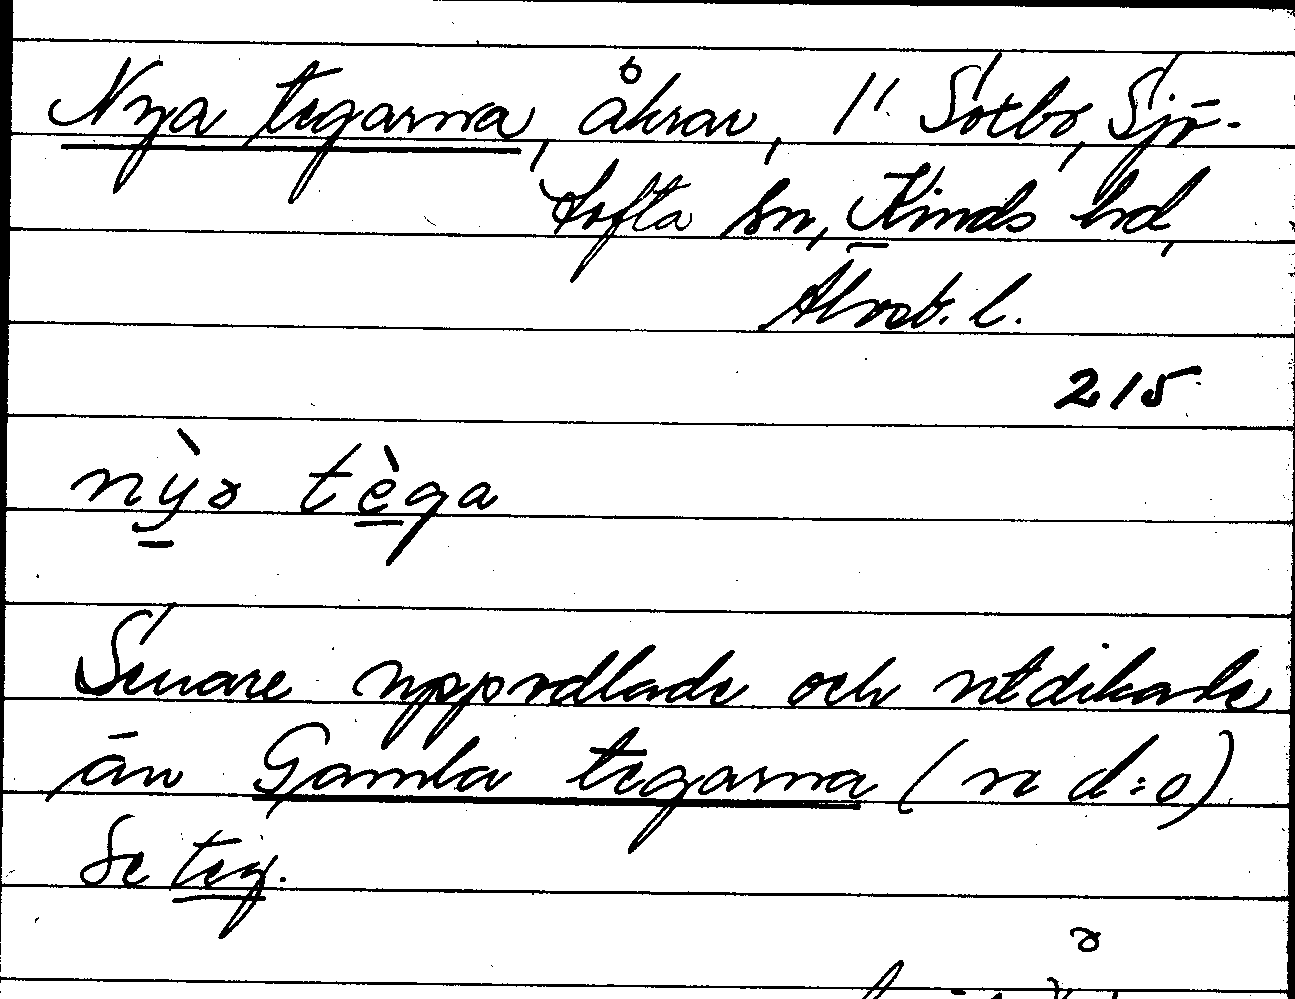 Nya tegarna, åkrar, 1' Sötbo, Sjö-
tofta sn, Kinds hd,
Älvsb. l.
215
nỳə tèga
Senare uppodlade och utdikade
än Gamla tegarna (n d:o)
Se teg.